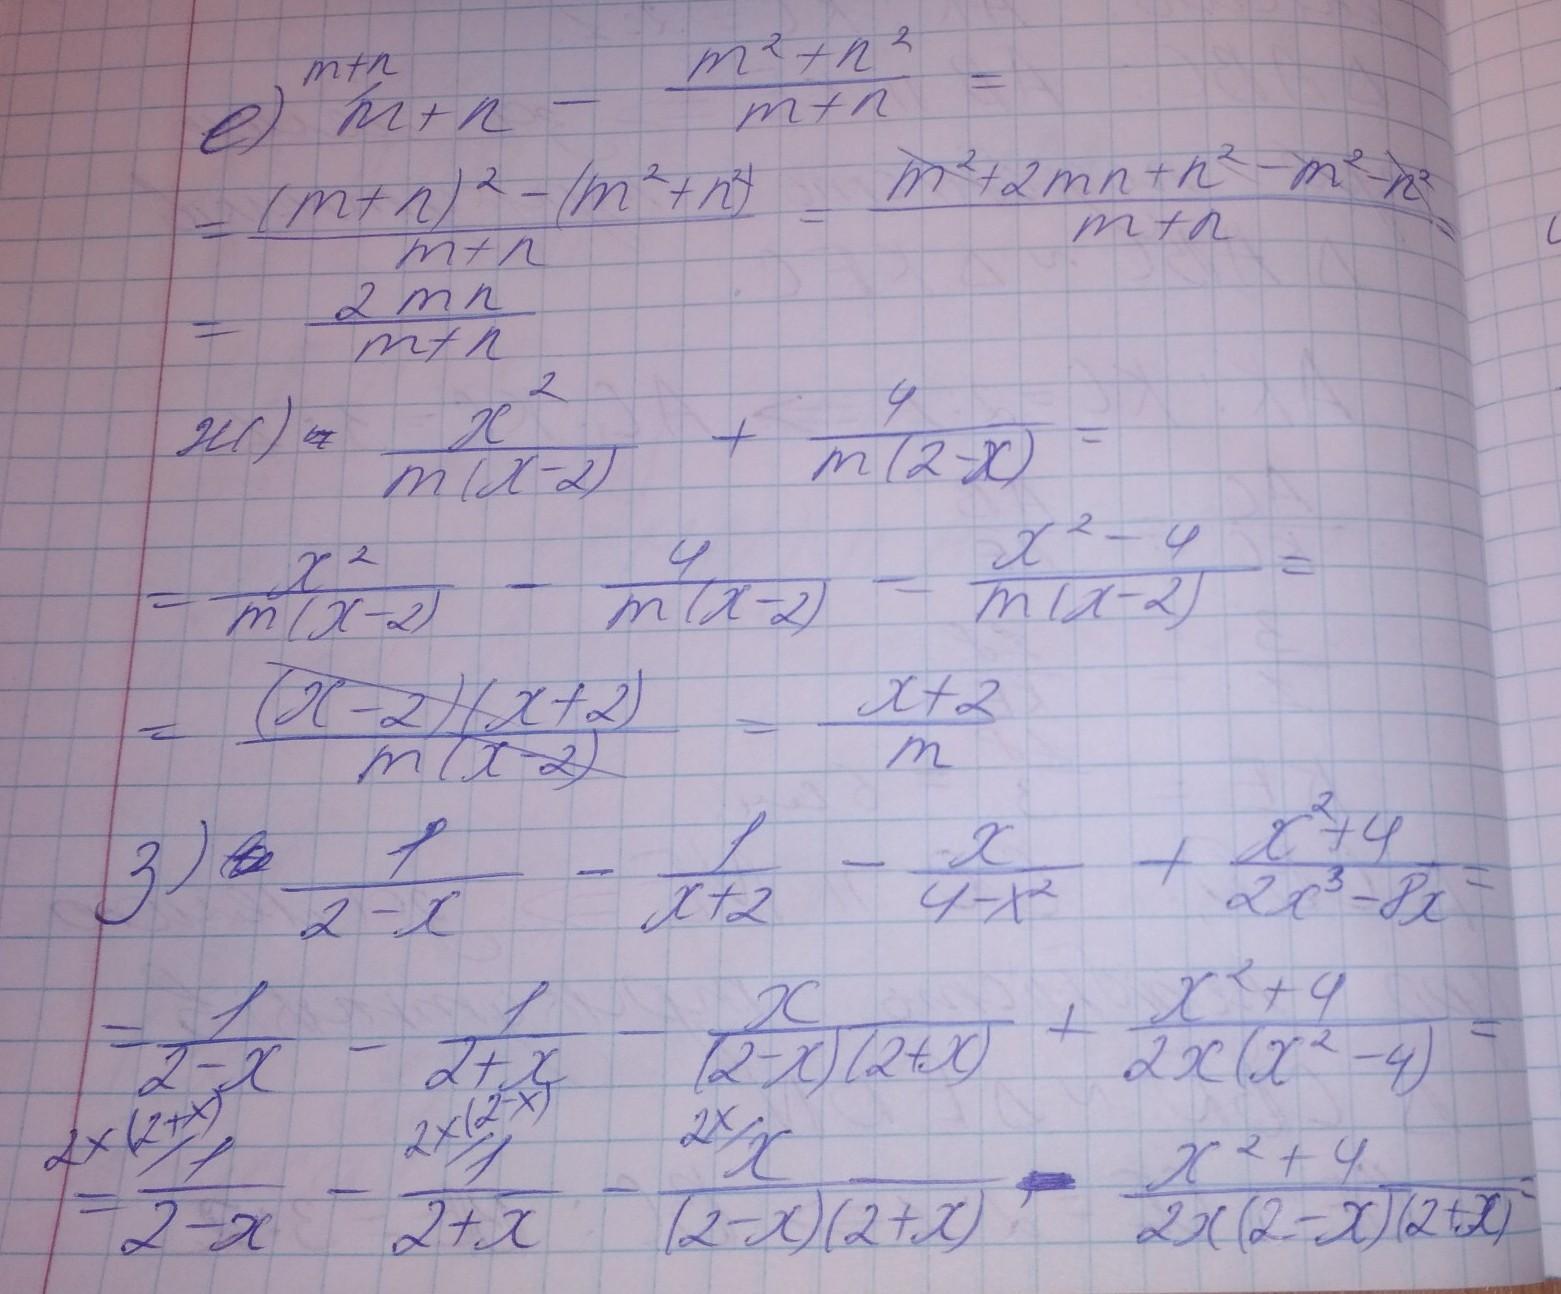 е) ^{m+n/} m+n - \frac{m²+n²}{m+n} =
= \frac{(m+n)² - (m²+n²)}{m+n} = \frac{m²+2mn+n²-m²-n²}{m+n} =
= \frac{2mn}{m+n}
ж) \frac{x²}{m(x-2)} + \frac{4}{m(2-x)} =
= \frac{x²}{m(x-2)} - \frac{4}{m(x-2)} = \frac{x²-4}{m(x-2)} =
= \frac{(x-2)(x+2)}{m(x-2)} = \frac{x+2}{m}
з) \frac{1}{2-x} - \frac{1}{x+2} - \frac{x}{4-x²} + \frac{x²+4}{2x³-8x} =
= \frac{1}{2-x} - \frac{1}{2+x} - \frac{x}{(2-x)(2+x)} + \frac{x²+4}{2x(x²-4)} =
= ^{2x(2+x)/} \frac{1}{2-x} - ^{2x(2-x)/} \frac{1}{2+x} - ^{2x/} \frac{x}{(2-x)(2+x)} - \frac{x²+4}{2x(2-x)(2+x)} =